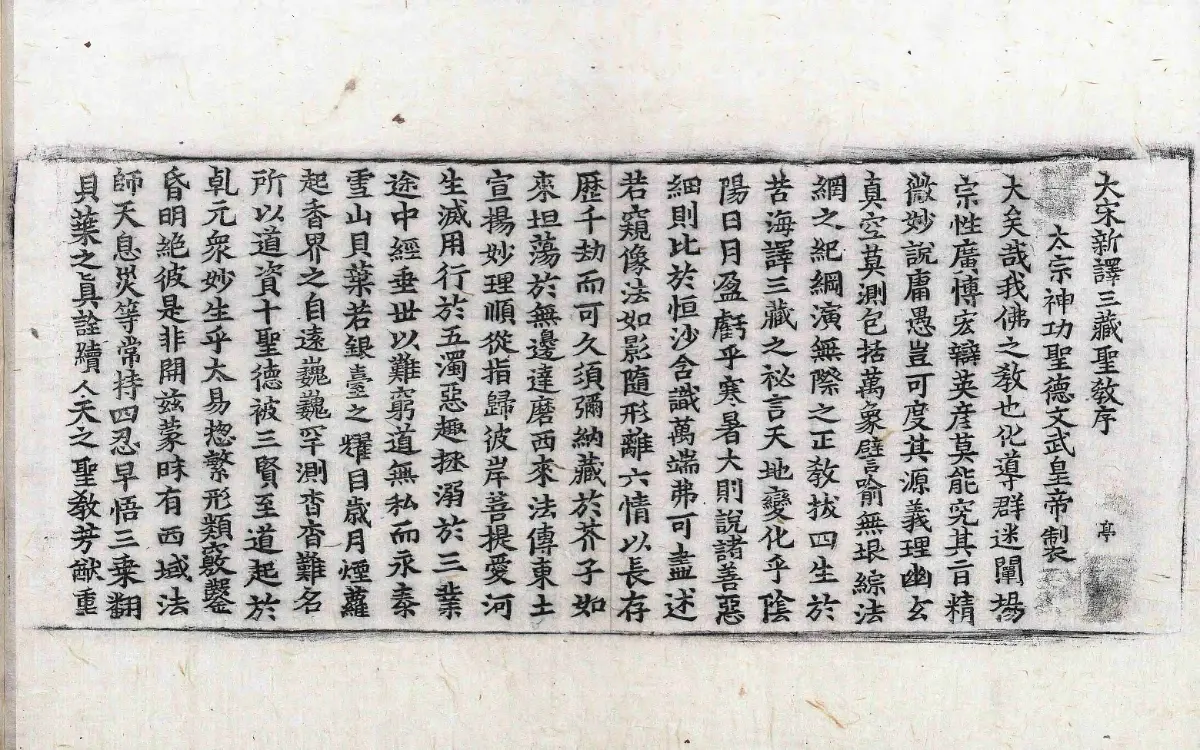 大宋新譯三藏聖教序
亭
太宗神功聖德文武皇帝製
大矣哉我佛之教也化導群迷闡揚
宗性廣博宏辯英彦莫能究其旨精
微妙說庸愚豈可度其源義理幽玄
真空莫測包括萬象譬喻無垠綜法
網之紀綱演無際之正教拔四生於
苦海譯三藏之祕言天地變化乎陰
陽日月盈虧乎寒暑大則說諸善惡
細則比於恒沙含識萬端弗可盡述
若窺像法如影隨形離六情以長存
歷千劫而可久須彌納藏於芥子如
來坦蕩於無邊達磨西來法傳東土
宣揚妙理順從指歸彼岸菩提愛河
生滅用行於五濁惡趣拯溺於三業
途中經垂世以難窮道無私而永泰
雪山貝葉若銀臺之耀目歲月煙蘿
起香界之自遠巍巍罕測杳杳難名
所以道資十聖德被三賢至道起於
乹元衆妙生乎太易揔繫形類竅鑿
昏明絶彼是非開兹蒙昧有西域法
師天息災等常持四忍早悟三乗翻
貝葉之真詮續人天之聖教芳猷重